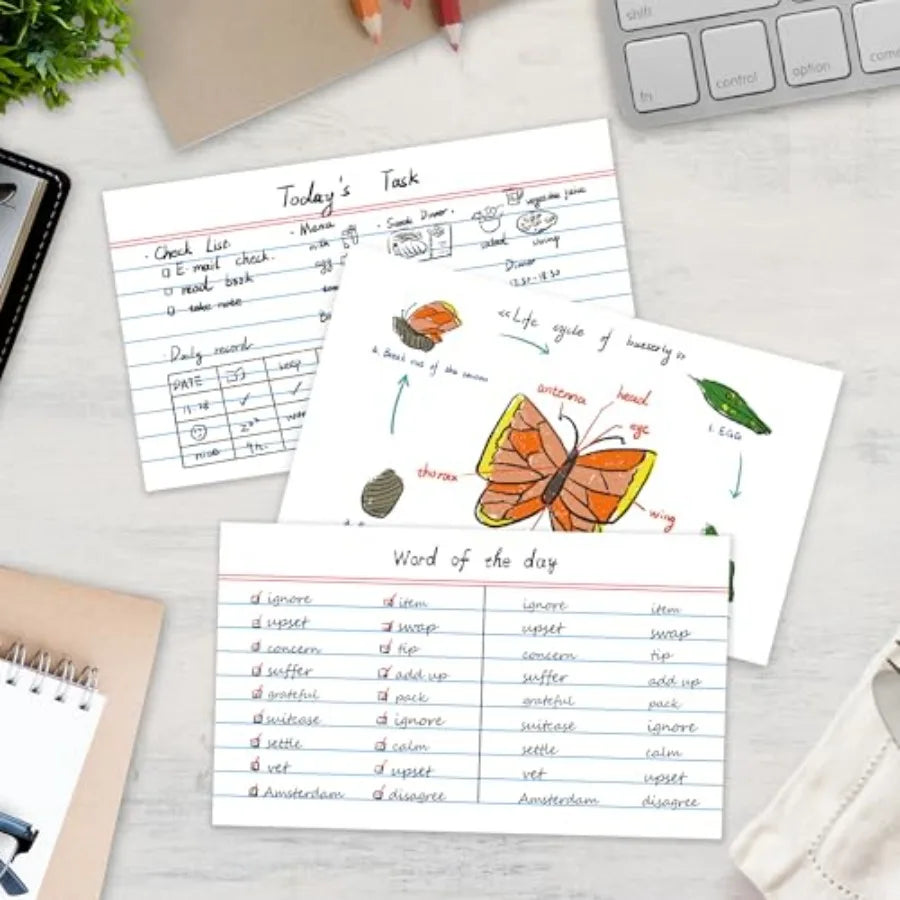 shift
fn
control
option
Today's Task
· Check List.
□ E-mail check.
□ read book
□ take note
· Menu
egg
· Snack Dinner.
vegetable juice
salad
Dinner
· Daily record
DATE
11-28 ✓ ✓
nice
<<Life cycle of butterfly>>
4. Break out of the cocoon
antenna
head
eye
thorax
wing
1. EGGs
Word of the day
ignore item ignore item
upset swap upset swap
concern tip concern tip
suffer add up suffer add up
grateful pack grateful pack
suitcase ignore suitcase ignore
settle calm settle calm
vet upset vet upset
Amsterdam disagree Amsterdam disagree